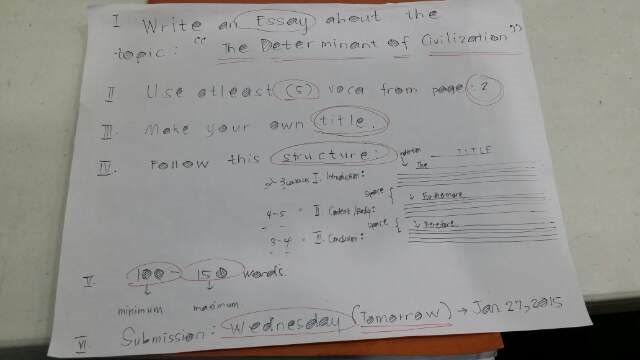 I Write an Essay about the
topic: "The Determinant of Civilization"
II Use atleast (5) voca from page: 2
III. Make your own title.
IV. Follow this structure:
TITLE
2-3 I. Introduction:
The
space
Furthermore
4-5 = II. Content/Body:
space
Therefore
3-4 = III. Conclusion:
V. 100 - 150 words.
minimum maximum
VI. Submission: Wednesday (Tomorrow) → Jan 27, 2015